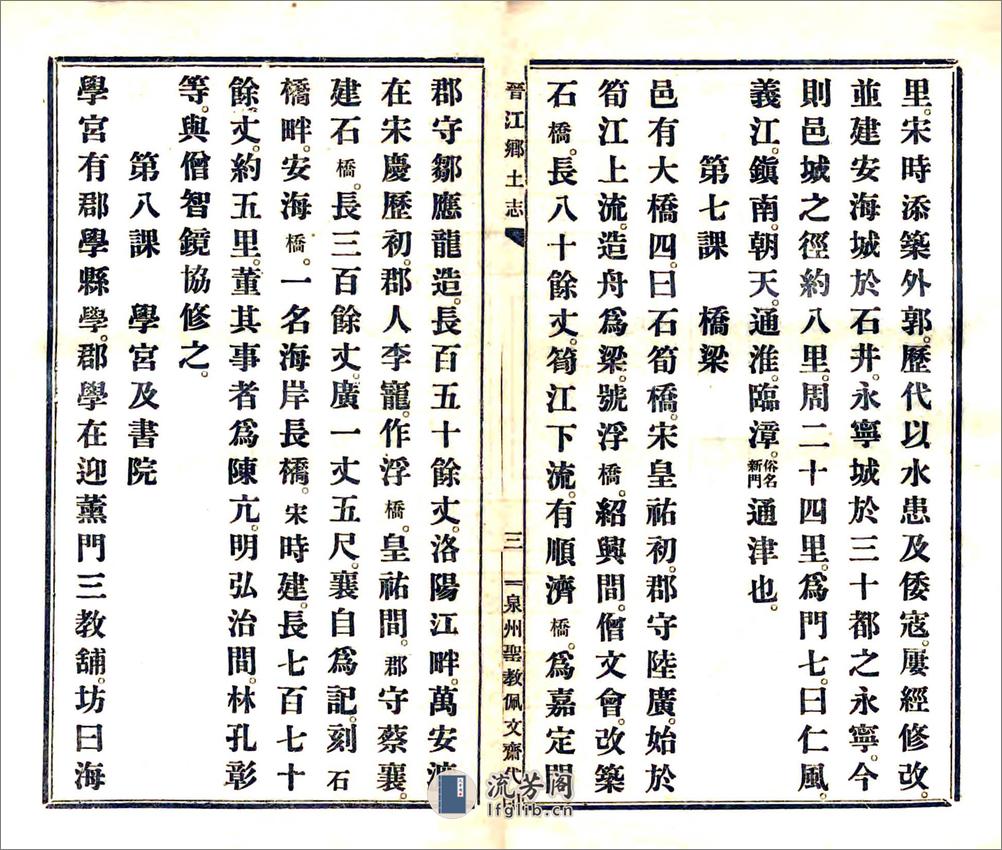 里。宋時添築外郭。歷代以水患及倭寇。屢經修改。
並建安海城於石井。永寧城於三十都之永寧。今
則邑城之徑約八里。周二十四里。爲門七。曰仁風。
義江。鎭南。朝天。通淮。臨漳。俗名新門通津也。
第七課　橋梁
邑有大橋四。曰石筍橋。宋皇祐初。郡守陸廣。始於
筍江上流。造舟爲梁。號浮橋。紹興間。僧文會。改築
石橋。長八十餘丈。筍江下流。有順濟橋。爲嘉定間
晉江鄉土志
三
泉州聖教佩文齋代
郡守鄒應龍造。長百五十餘丈。洛陽江畔。萬安渡
在宋慶歷初。郡人李寵。作浮橋。皇祐間。郡守蔡襄。
建石橋。長三百餘丈。廣一丈五尺。襄自爲記。刻石
橋畔。安海橋。一名海岸長橋。宋時建。長七百七十
餘丈。約五里。董其事者爲陳亢。明弘治間。林孔彰
等。與僧智鏡協修之。
第八課　學宮及書院
學宮有郡學縣學。郡學在迎薰門三教舖。坊曰海
流芳阁
lfglib.cn